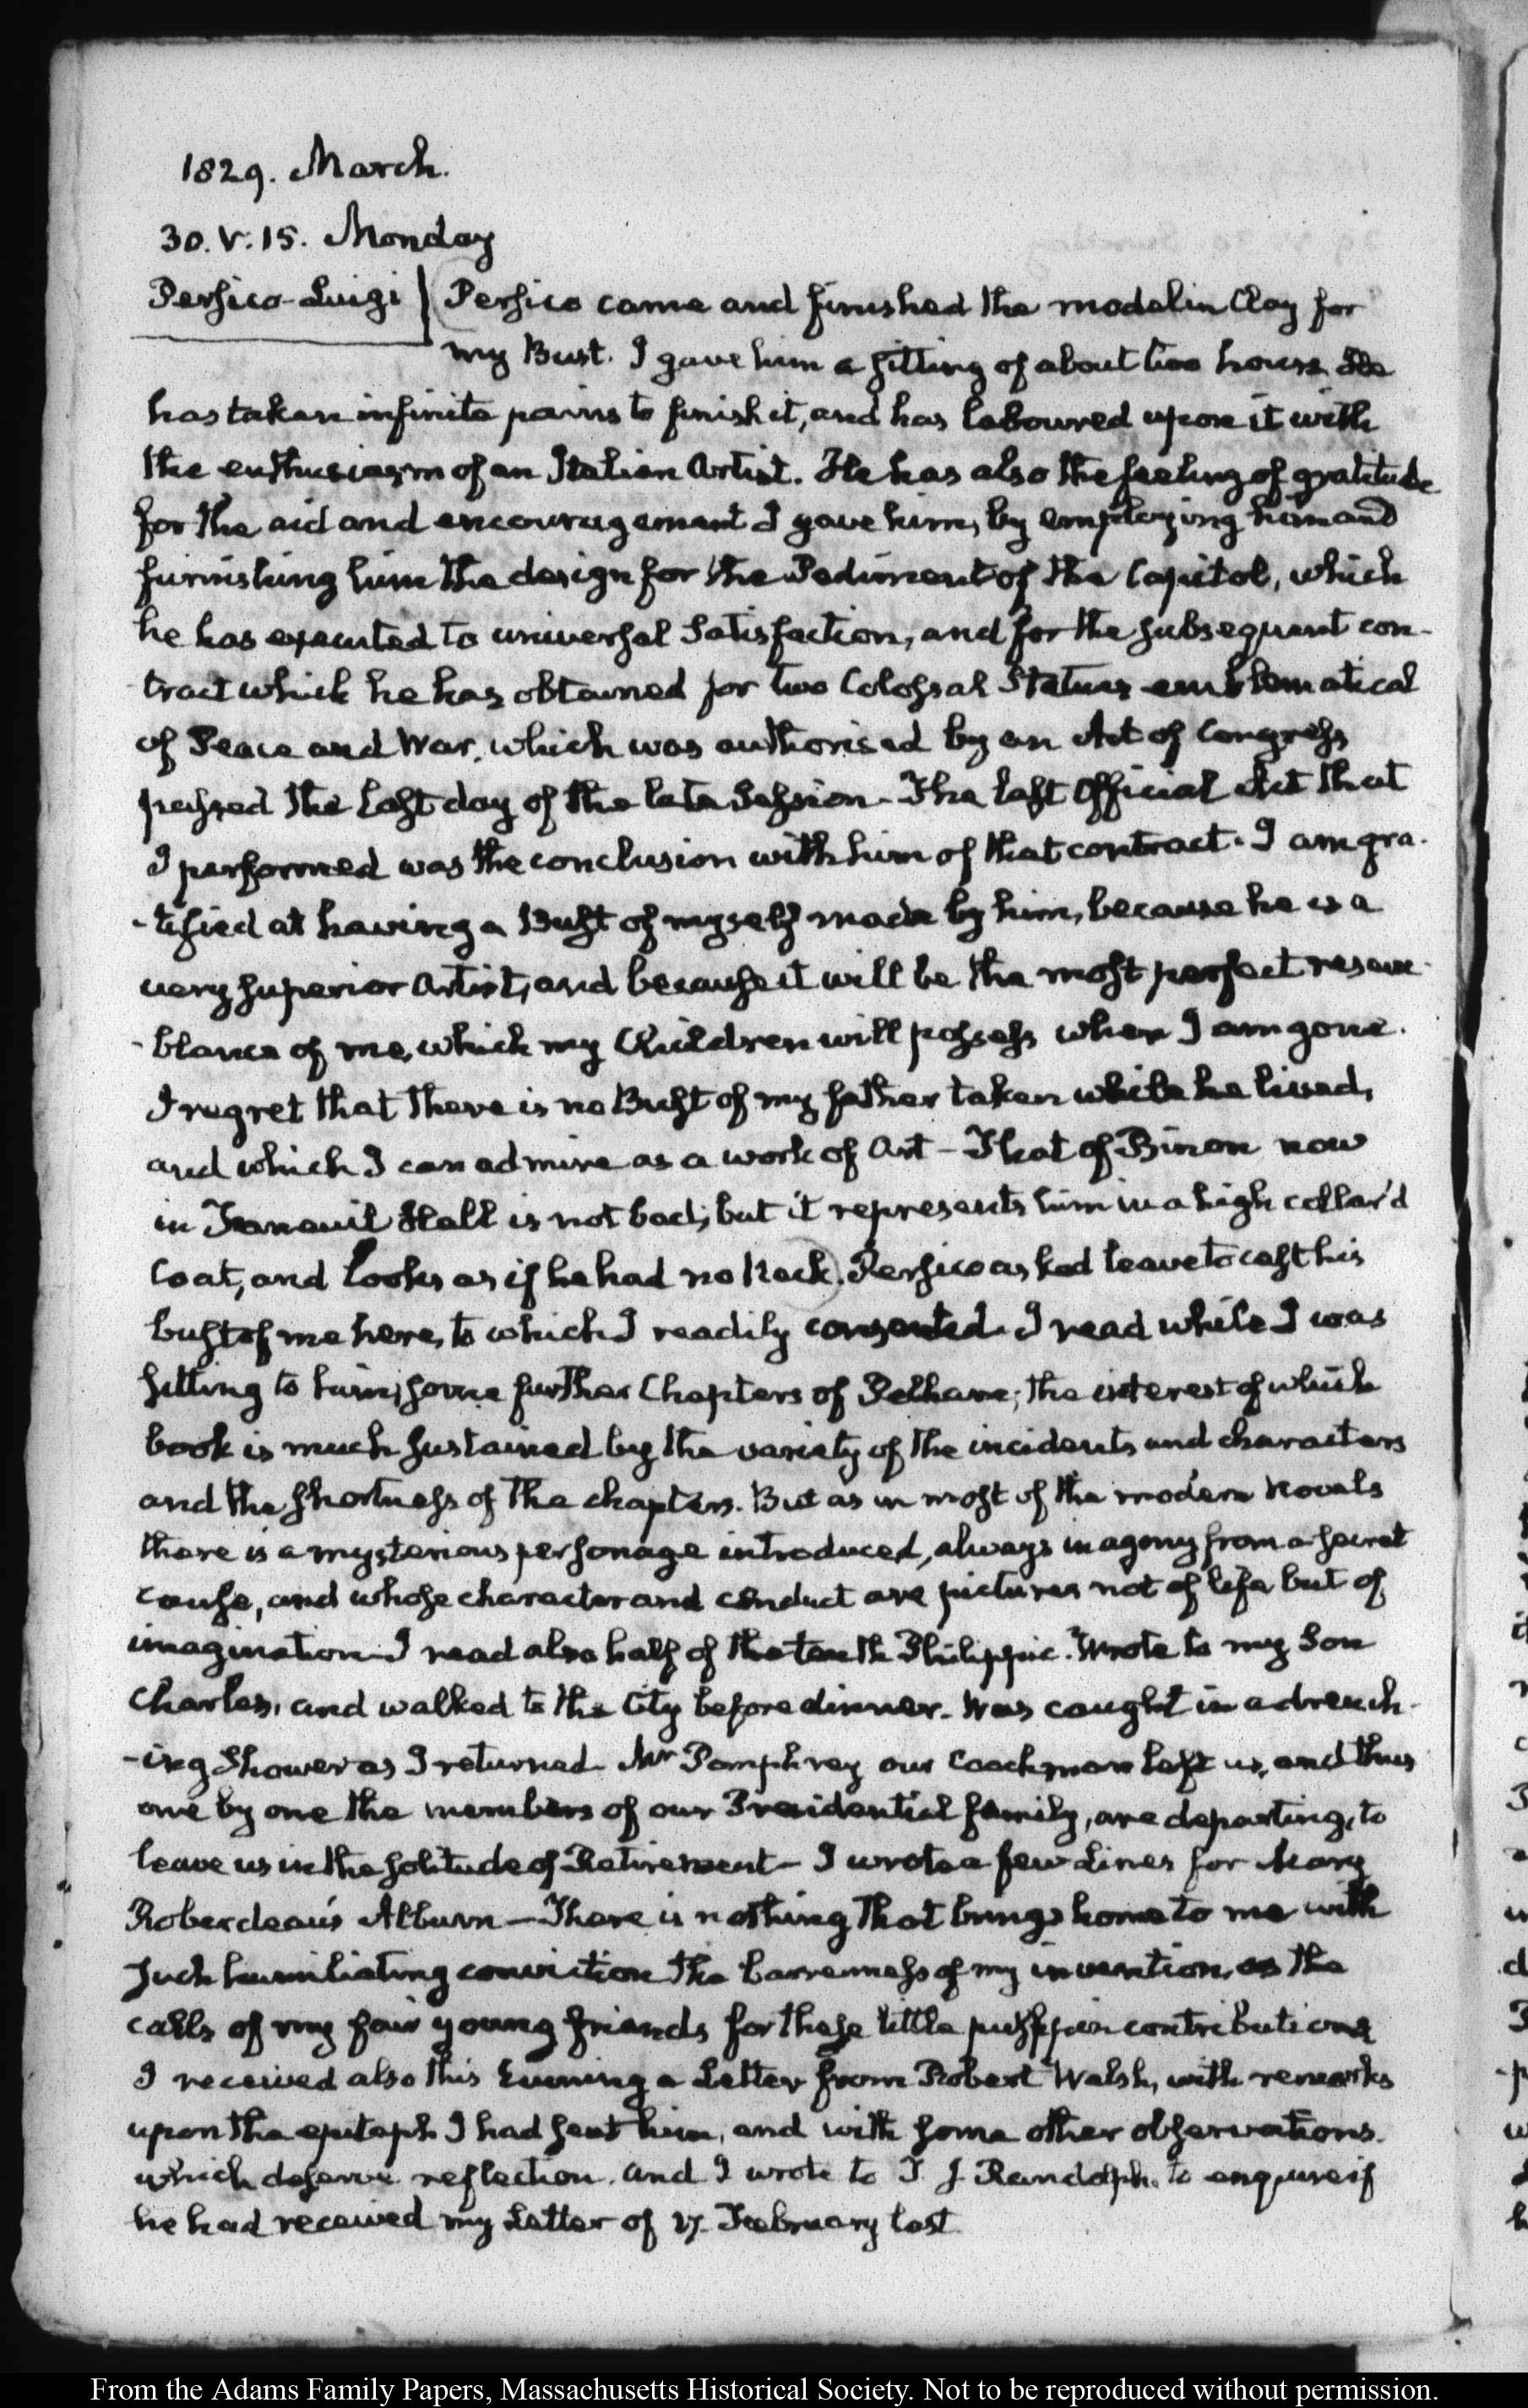 1829. March.
30. V:15. Monday
Persico-Luigi Persico came and finished the model in Clay for
my Bust. I gave him a sitting of about two hours. He
has taken infinite pains to finish it, and has laboured upon it with
the enthusiasm of an Italian Artist. He has also the feeling of gratitude
for the aid and encouragement I gave him, by employing him and
furnishing him the design for the Pediment of the Capitol, which
he has executed to universal satisfaction, and for the subsequent con-
tract which he has obtained for two Colossal Statues emblematical
of Peace and War, which was authorised by an Act of Congress
passed the last day of the late Session - The last Official Act that
I performed was the conclusion with him of that contract. I am gra-
-tified at having a Bust of myself made by him, because he is a
very superior Artist, and because it will be the most perfect resem-
-blance of me, which my Children will possess when I am gone.
I regret that there is no Bust of my father taken while he lived,
and which I can admire as a work of Art - That of Binon now
in Faneuil Hall is not bad; but it represents him in a high collar'd
Coat, and looks as if he had no Neck. Persico asked leave to cast his
bust of me here, to which I readily consented. I read while I was
sitting to him, some further Chapters of Pelham; the interest of which
book is much sustained by the variety of the incidents and characters
and the shortness of the chapters. But as in most of the modern Novels
there is a mysterious personage introduced, always in agony from a secret
cause, and whose character and conduct are pictures not of life but of
imagination - I read also half of the tenth Philippic. Wrote to my Son
Charles, and walked to the City before dinner. Was caught in a drench-
-ing shower as I returned. Mr Pomphrey our Coachman left us, and thus
one by one the members of our Presidential family, are departing, to
leave us in the solitude of Retirement - I wrote a few Lines for Mary
Roberdeau's Album - There is nothing that brings home to me with
such humiliating conviction the barrenness of my invention, as the
calls of my fair young friends for these little contributions
I received also this Evening a Letter from Robert Walsh, with remarks
upon the epitaph I had sent him, and with some other observations.
which deserve reflection. and I wrote to T. J. Randolph. to enquire if
he had received my Letter of 17. February last
From the Adams Family Papers, Massachusetts Historical Society. Not to be reproduced without permission.